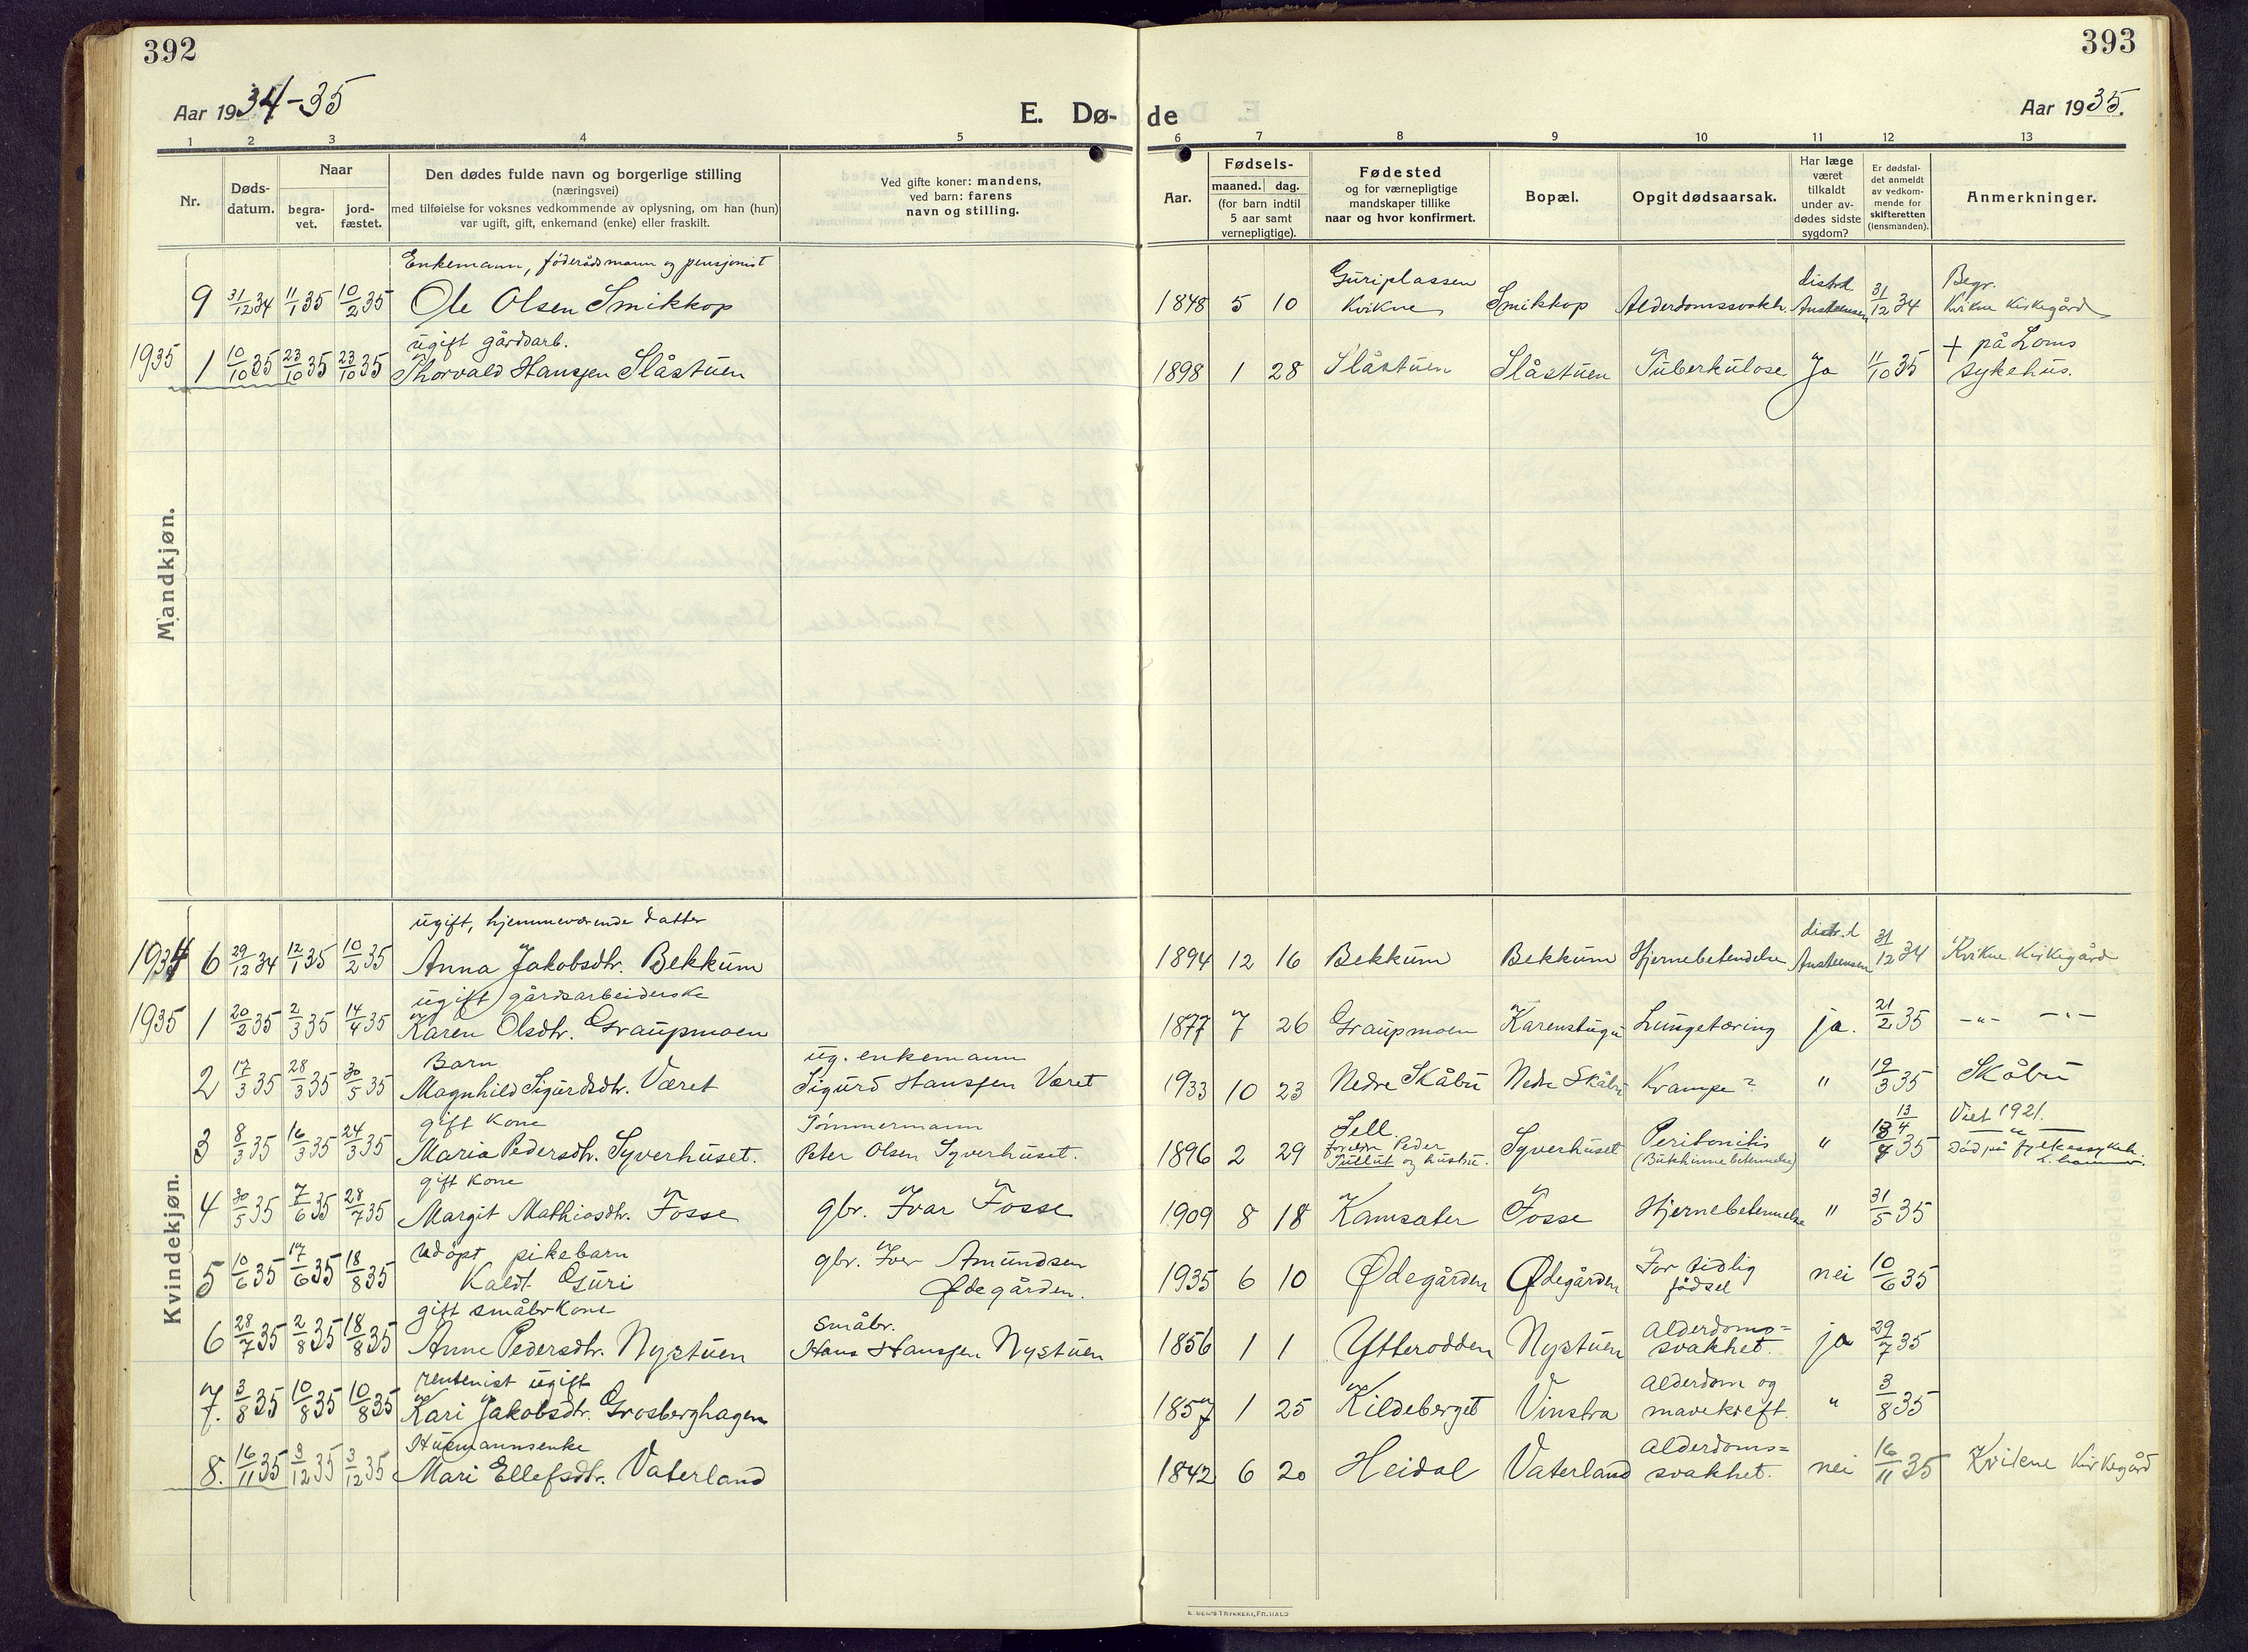 392
393
Aar 1934-35
E. Dø-
de
Aar 1935.
1 2 3 4 5 6 7 8 9 10 11 12 13
Nr.
Døds-
datum.
Naar
begra-
vet.
jord-
fæstet.
Den dødes fulde navn og borgerlige stilling
(næringsvei)
med tilføielse for voksnes vedkommende av oplysning, om han (hun)
var ugift, gift, enkemand (enke) eller fraskilt.
Ved gifte koner: mandens,
ved barn: farens
navn og stilling.
Aar.
Fødsels-
maaned. dag.
(for barn indtil
5 aar samt
vernepligtige).
Fødested
og for værnepligtige
mandskaper tillike
naar og hvor konfirmert.
Bopæl.
Opgit dødsaarsak.
Har læge
været
tilkaldt
under av-
dødes sidste
sygdom?
Er dødsfal-
det anmeldt
av vedkom-
mende for
skifteretten
(lensmanden).
Anmerkninger.
Mandkjøn.
Enkemann, föderådsmann og pensjonist Guriplassen distr.l Begr.
9 31/12 34 11/1 35 10/2 35 Ole Olsen Smikkop 1848 5 10 Kvikne Smikkop Alderdomssvakh. Austeensen 31/12 34 Kvikne Kirkegård
ugift gårdsarb. + på Loms
1935 1 10/10 35 23/10 35 23/10 35 Thorvald Hanssen Slåstuen 1898 1 28 Slåstuen Slåstuen Tuberkulose Ja 11/10 35 sykehus.
Kvindekjøn.
ugift, hjemmeværende datter distr.l
1934 6 29/12 34 12/1 35 10/2 35 Anna Jakobsdtr. Bekkum 1894 12 16 Bekkum Bekkum Hjernebetendelse Austeensen 31/12 34 Kvikne Kirkegård
ugift gårdsarbeiderske
1935 1 20/2 35 2/3 35 14/4 35 Karen Olsdtr. Graupmoen 1877 7 26 Graupmoen Karenstugu Lungetæring ja. 21/2 35 -"- -"-
Barn ug. enkemann
2 17/3 35 28/3 35 30/5 35 Magnhild Sigurdsdtr. Været Sigurd Hanssen Været 1933 10 23 Nedre Skåbu Nedre Skåbu Krampe? " 19/3 35 Skåbu
gift Kone Tömmermann Sell. 13/4 Viet 1921.
3 8/3 35 16/3 35 24/3 35 Maria Pedersdtr. Syverhuset. Peter Olsen Syverhuset. 1896 2 29 foreldre Peder Syverhuset Peritonitis " 35 —"—
Tullut og hustru. (Bukhinnebetennelse) Död på fylkessykeh.
gift Kone
4 30/5 35 7/6 35 28/7 35 Margit Mathiasdtr. Fosse gbr. Ivar Fosse 1909 8 18 Kamsater Fosse Hjernebetennelse " 31/5 35
udöpt pikebarn gbr. Iver Amundsen For tidlig
5 10/6 35 17/6 35 18/8 35 Kaldt Guri Ødegården. 1935 6 10 Ødegården Ødegården födsel nei 10/6 35
gift småbrkone småbr. Alderdoms=
6 28/7 35 2/8 35 18/8 35 Anne Pedersdtr. Nystuen Hans Hanssen Nystuen 1856 1 1 Ytterodden Nystuen svakhet. ja 29/7 35
rentenist ugift Alderdom og
7. 3/8 35 10/8 35 10/8 35 Kari Jakobsdtr. Grosberghagen 1857 1 25 Kildeberget Vinstra mavekreft. " 3/8 35
Husmannsenke Alderdoms=
8. 16/11 35 3/12 35 3/12 35 Mari Ellefsdtr. Vaterland 1842 6 20 Heidal Vaterland svakhet. nei 16/11 35 Kvikne Kirkegård